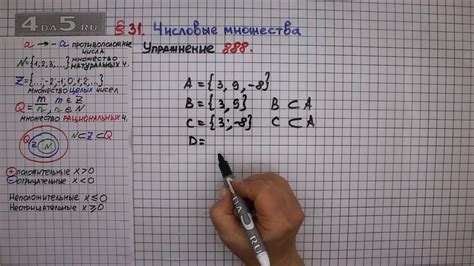 4DA5.RU
§31. Числовые множества
Упражнение 888.
a → -a противоположные числа
N={1;2;3;...} множество натуральных ч.
Z={...;-2;-1;0;1;2...}
множество целых чисел
Q = m/n, m ∈ Z, n ∈ N
множество рациональных ч.
N⊂Z⊂Q
Q Z N
⊕ положительные x>0
⊖ отрицательные x<0
Неположительные x≤0
Неотрицательные x≥0
A = {3, 9, -8}
B = {3, 9} B ⊂ A
C = {3; -8} C ⊂ A
D=
4DA5.RU